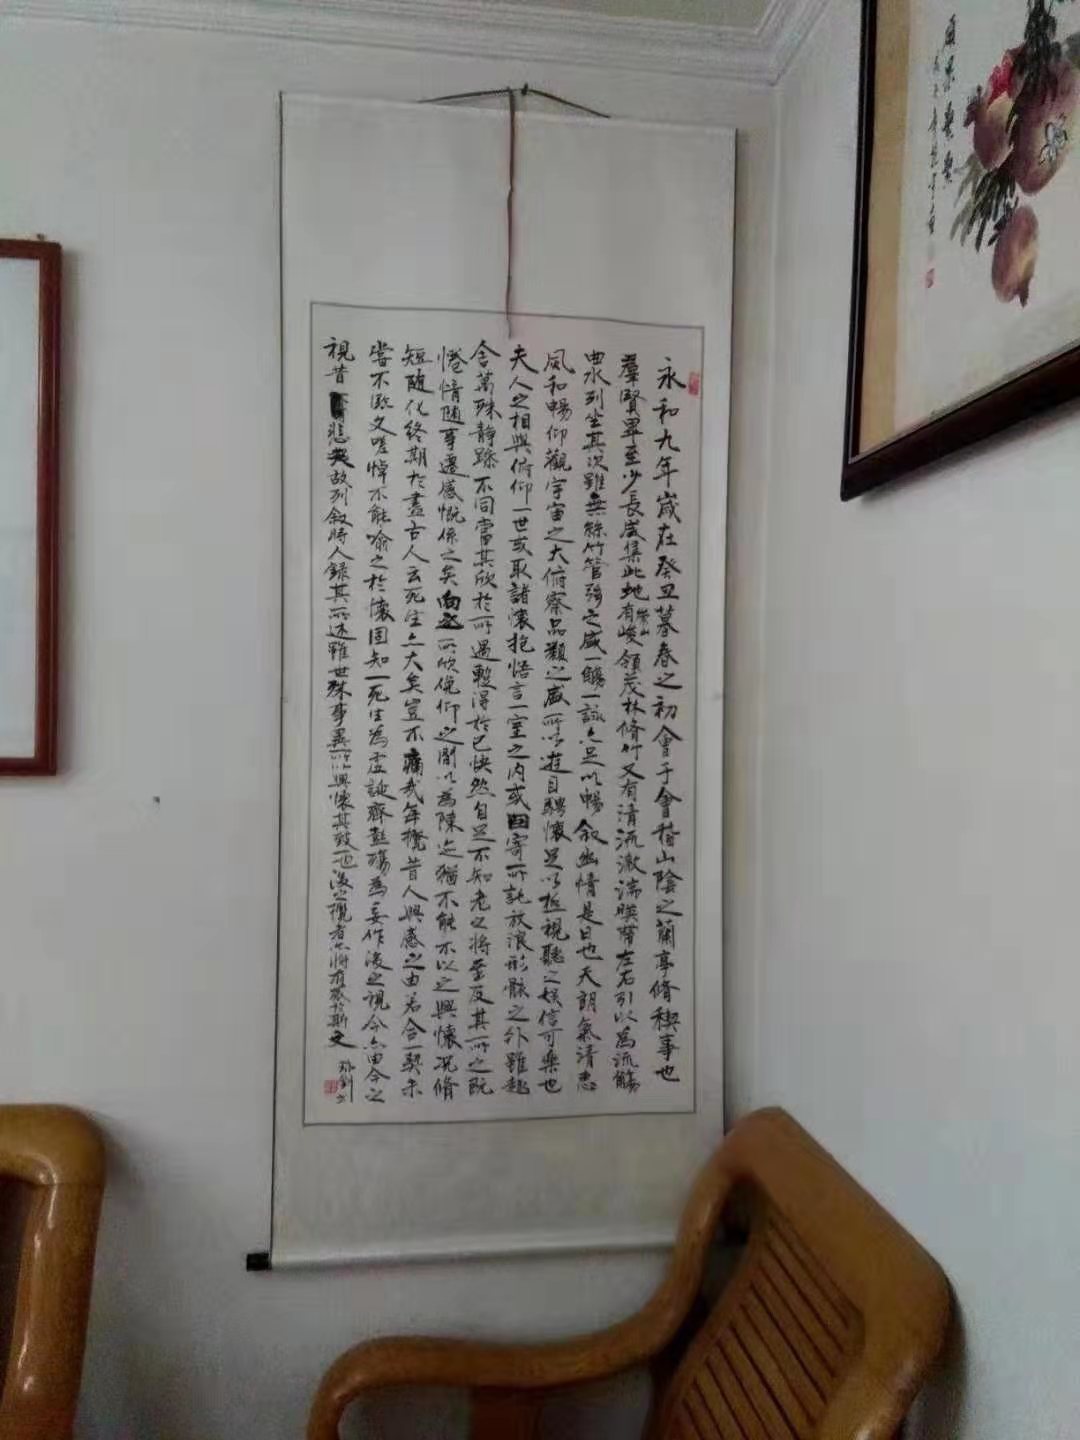 永和九年歲在癸丑暮春之初會于會稽山陰之蘭亭脩稧事也
羣賢畢至少長咸集此地有崇山峻領茂林脩竹又有清流激湍暎帶左右引以為流觴
曲水列坐其次雖無絲竹管弦之盛一觴一詠亦足以暢叙幽情是日也天朗氣清惠
風和暢仰觀宇宙之大俯察品類之盛所以遊目騁懷足以極視聽之娛信可樂也
夫人之相與俯仰一世或取諸懷抱悟言一室之內或因寄所託放浪形骸之外雖趣
舍萬殊静躁不同當其欣於所遇暫得於己快然自足不知老之將至及其所之既
惓情随事遷感慨係之矣向之所欣俛仰之間以為陳迹猶不能不以之興懷况脩
短随化終期於盡古人云死生亦大矣豈不痛哉每攬昔人興感之由若合一契未
嘗不臨文嗟悼不能喻之於懷固知一死生為虛誕齊彭殤為妄作後之視今亦由今之
視昔悲夫故列叙時人錄其所述雖世殊事異所以興懷其致一也後之攬者亦將有感於斯文